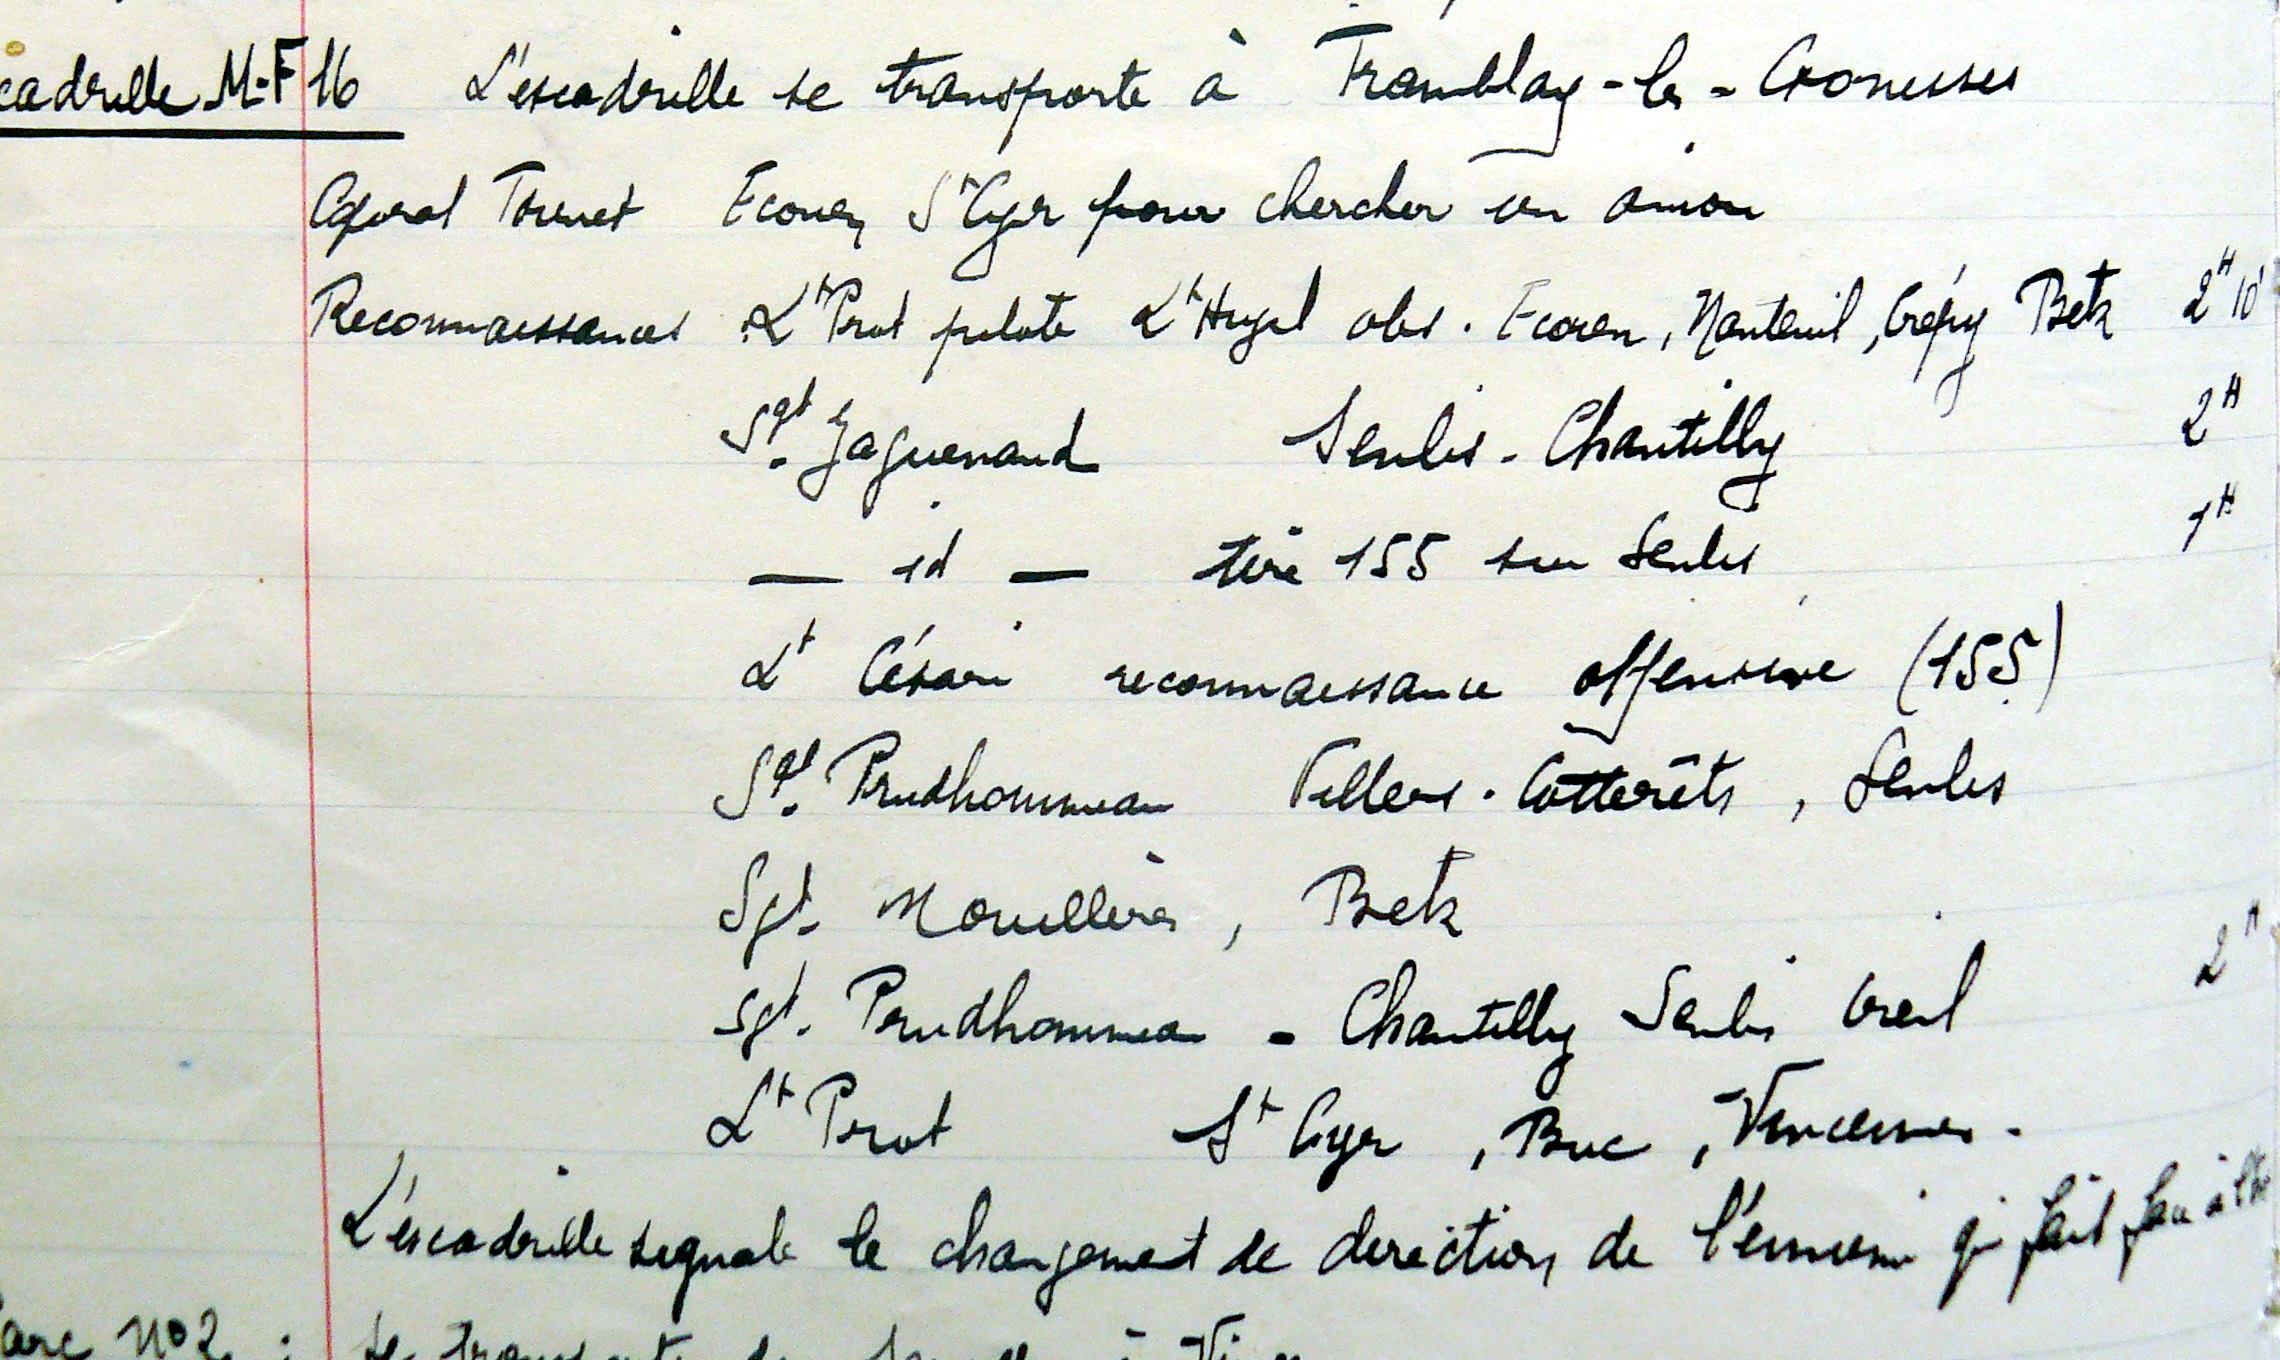 cadrille M-F 16 L'escadrille se transporte à Tremblay-les-Gonesses
Caporal Ecouen, St Cyr pour chercher un avion
Reconnaissances Lt Prot pilote Lt Hugel obs. Ecouen, Nanteuil, Crépy Betz 2H 10'
Sgt. Jaguenaud Senlis - Chantilly 2H
— id — tire 155 sur Senlis 1H
Lt Césari reconnaissance offensive (155)
Sgt. Prudhommeau Villers-Cotterêts, Senlis
Sgt. Mouillères, Betz
Sgt. Prudhommeau - Chantilly Senlis Creil 2H
Lt Prot St Cyr, Buc, Vincennes.
L'escadrille signale le changement de direction de l'ennemi qui fait face à
arc No 2 : se transporte de à